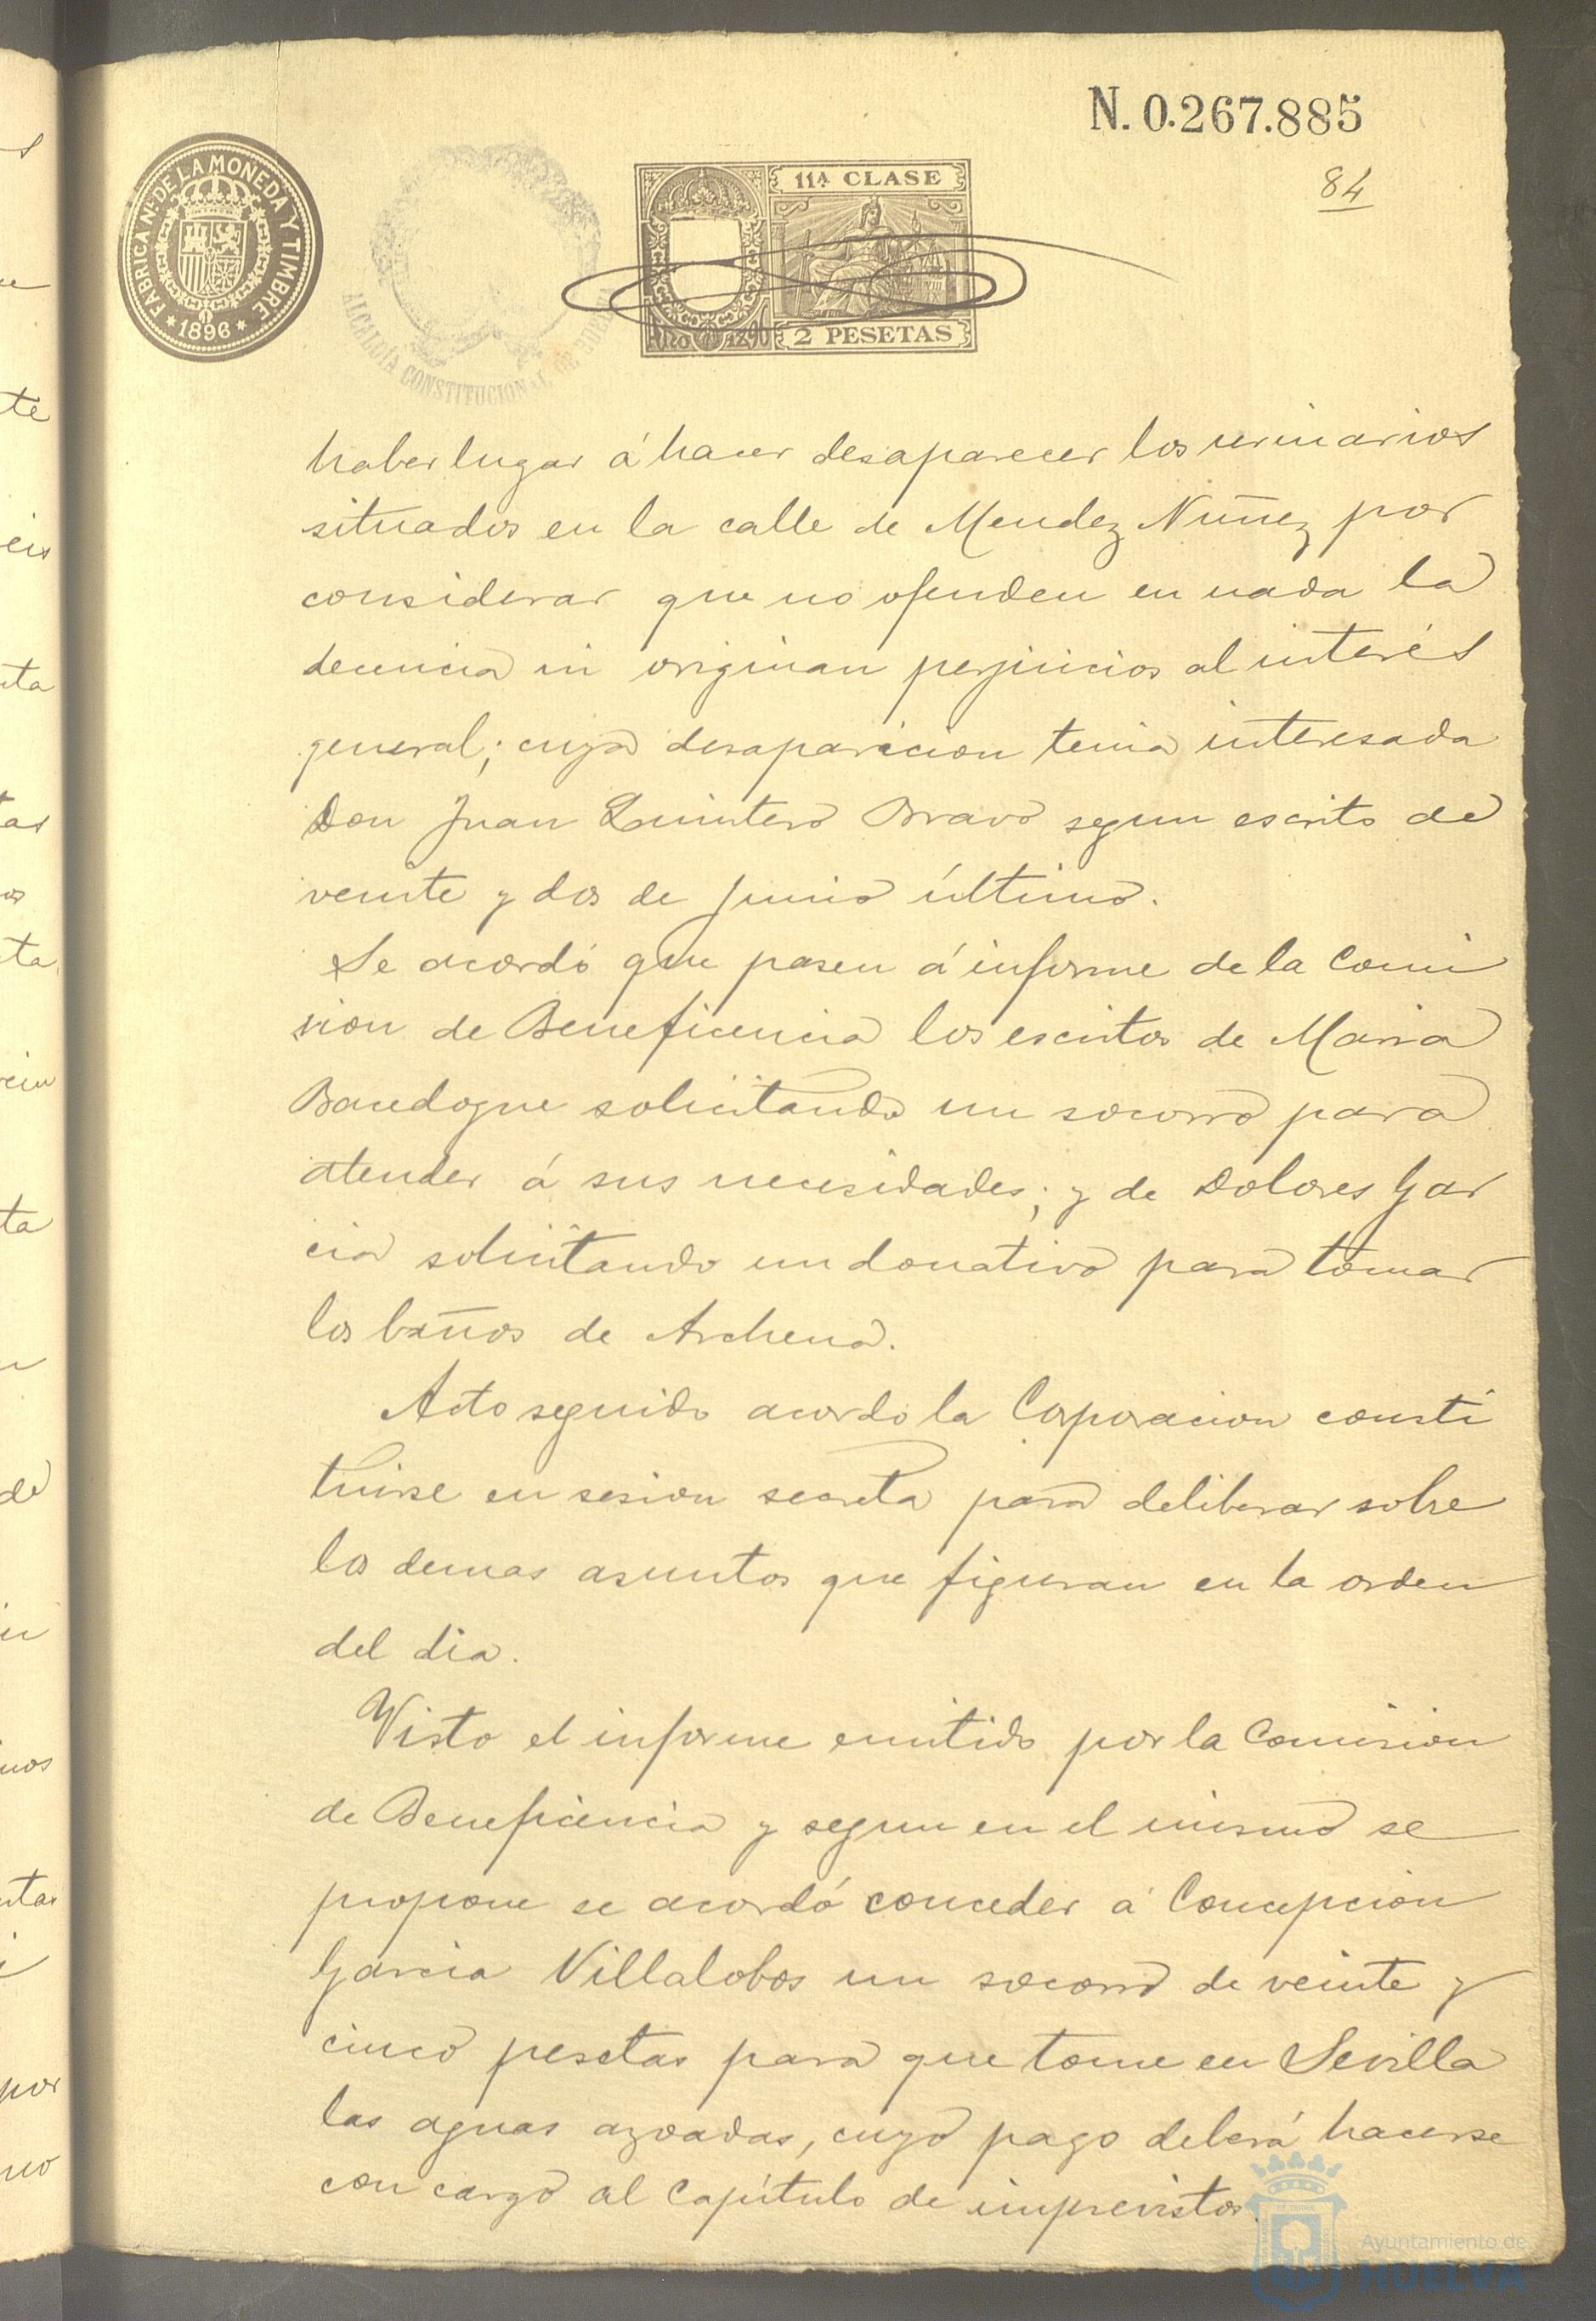 N. 0.267.885
84
FABRICA Nl. DE LA MONEDA Y TIMBRE
* 1896 *
ALCALDÍA CONSTITUCIONAL DE
11ª CLASE
Año 1896
2 PESETAS
haber lugar á hacer desaparecer los urinarios
situados en la calle de Mendez Nuñez por
considerar que no ofenden en nada la
decencia ni originan perjuicios al interés
general; cuya desaparicion tenia interesada
Don Juan Quintero Bravo segun escrito de
veinte y dos de junio último.
Se acordó que pasen á informe de la Comi
sion de Beneficencia los escritos de Maria
solicitando un socorro para
atender á sus necesidades; y de Dolores Gar
cia solicitando un donativo para tomar
los baños de Archena.
Acto seguido acordo la Corporacion consti
tuirse en sesion secreta para deliberar sobre
los demas asuntos que figuran en la orden
del dia.
Visto el informe emitido por la Comision
de Beneficencia y segun en el mismo se
propone se acordó conceder á Concepcion
Garcia Villalobos un socorro de veinte y
cinco pesetas para que tome en Sevilla
las aguas azoadas, cuyo pago deberá hacerse
con cargo al Capítulo de imprevistos.
Ayuntamiento de
HUELVA